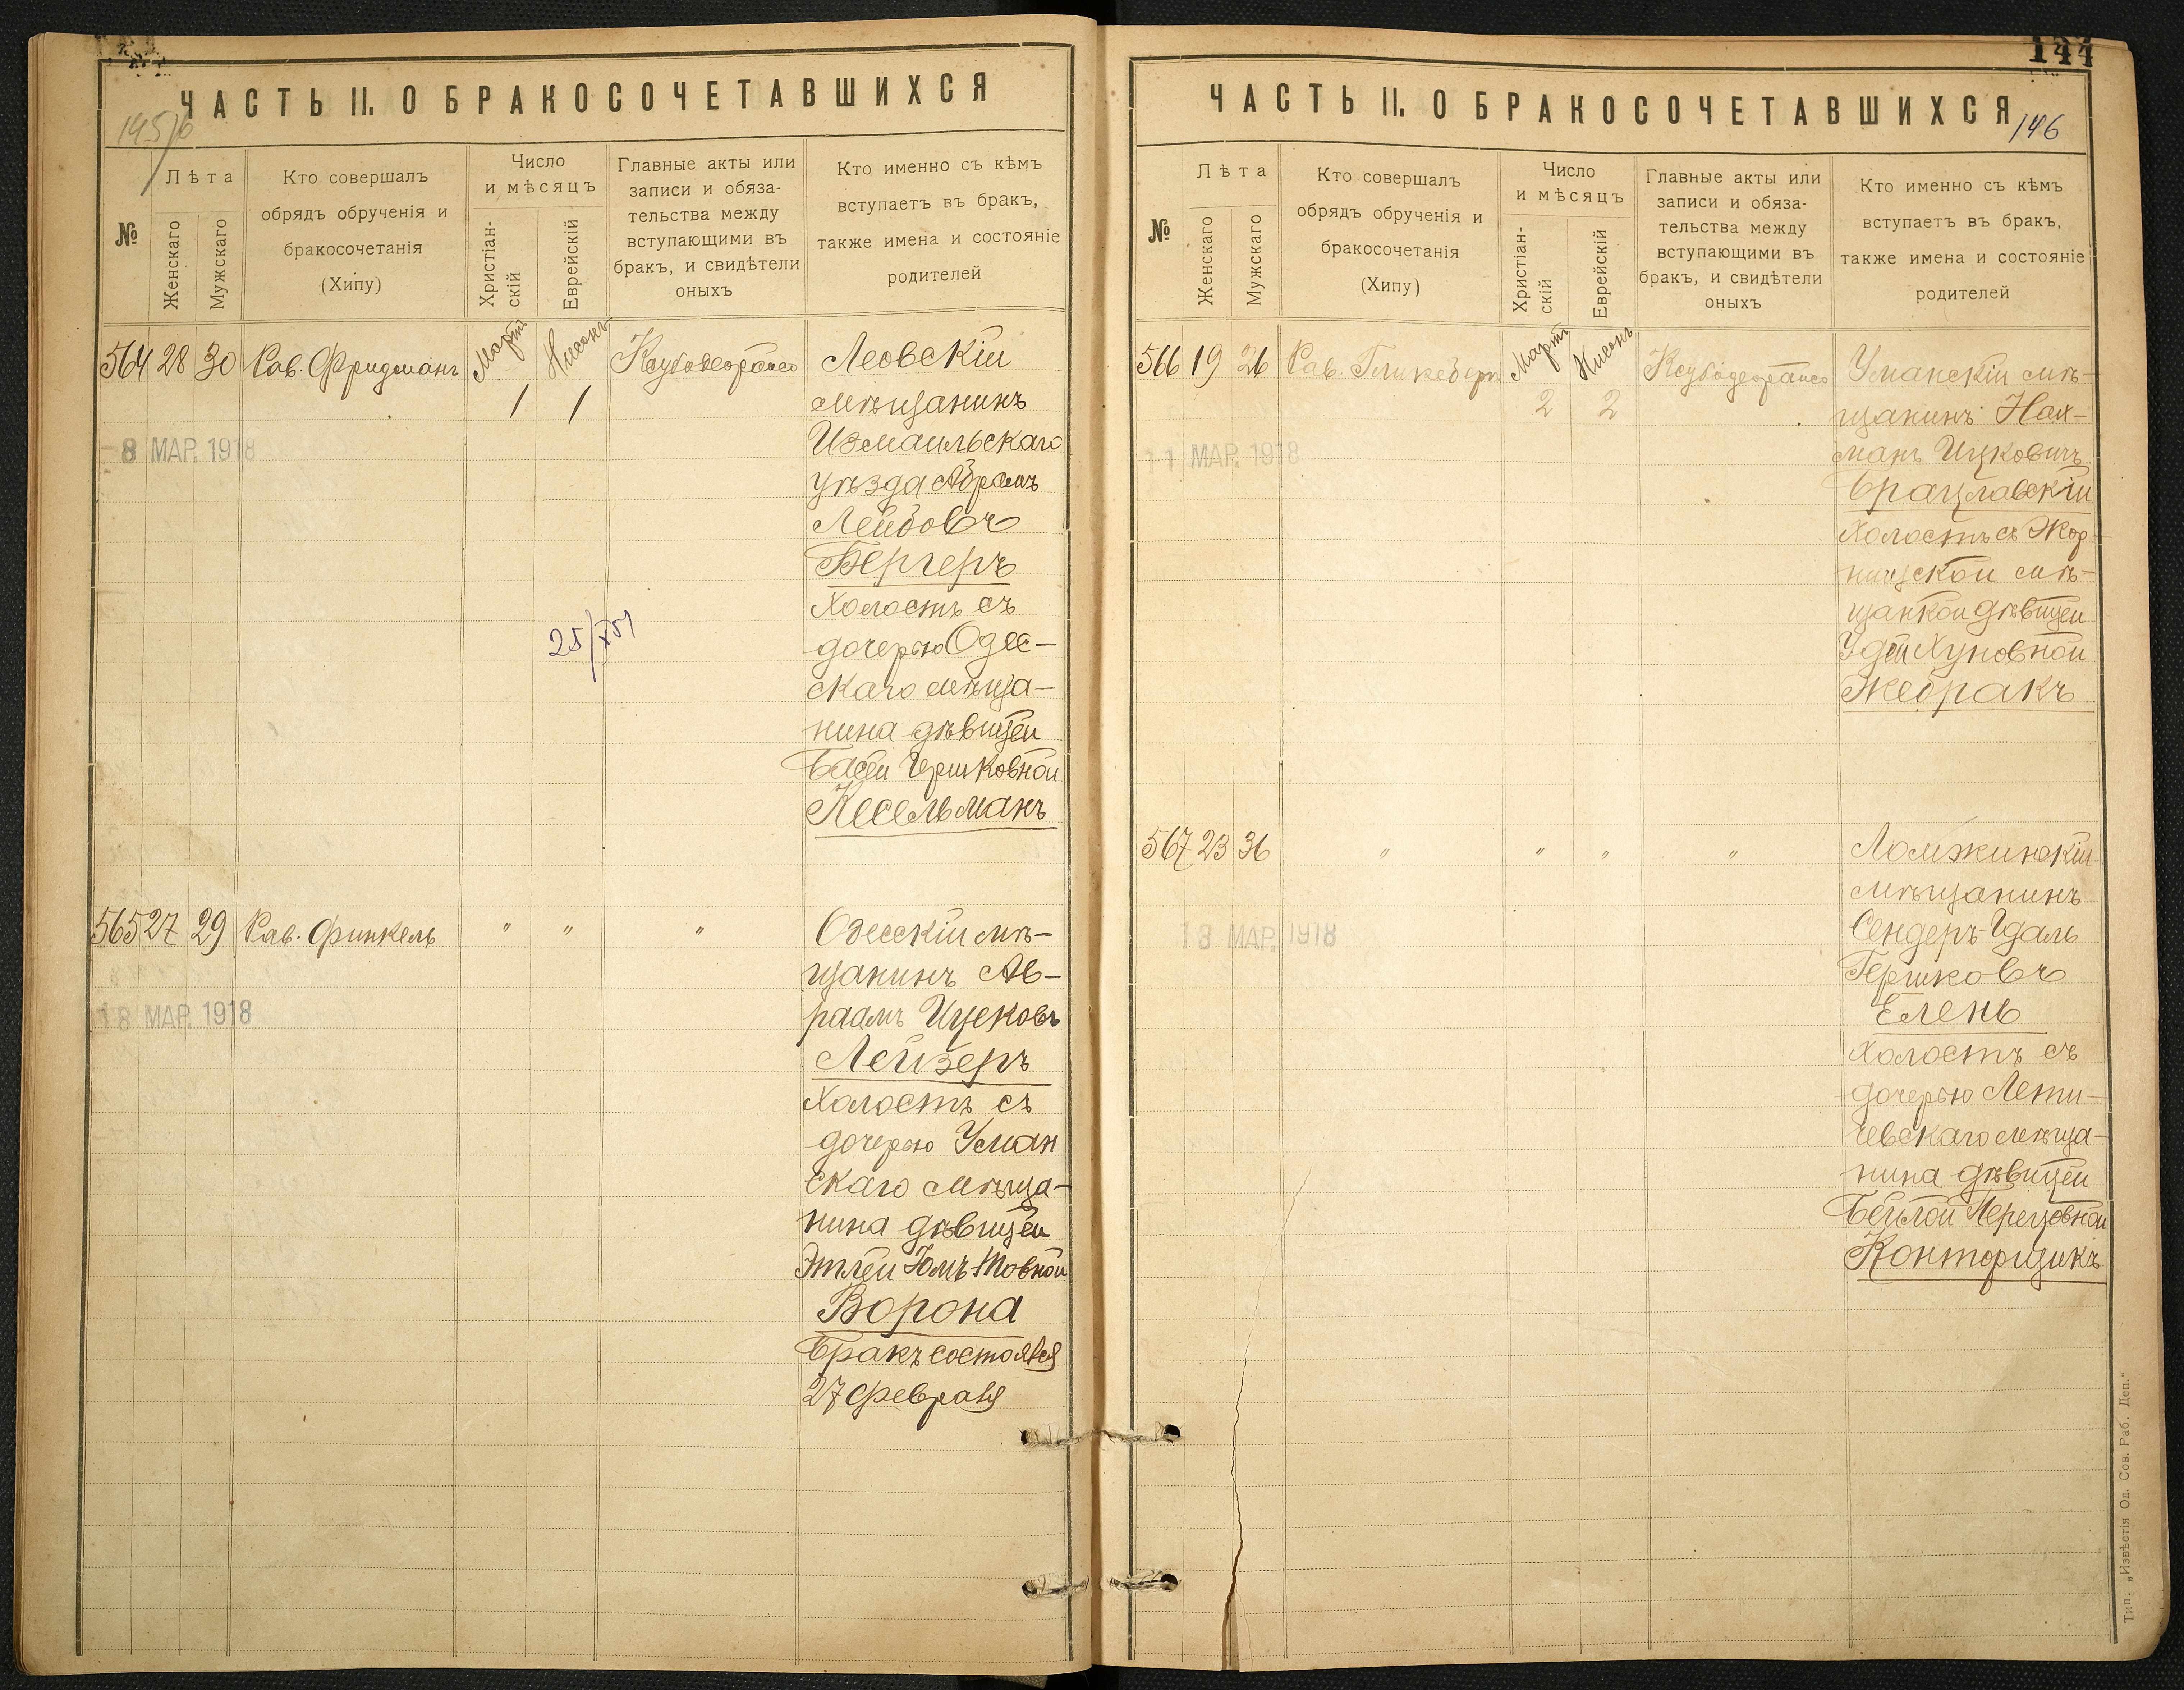 ЧАСТЬ II. О БРАКОСОЧЕТАВШИХСЯ
№
Лѣта
Женскаго
Мужскаго
Кто совершалъ
обрядъ обрученія и
бракосочетанія
(Хипу)
Число
и мѣсяцъ
Христіан-
скій
Еврейскій
Главные акты или
записи и обяза-
тельства между
вступающими въ
бракъ, и свидѣтели
оныхъ
Кто именно съ кѣмъ
вступаетъ въ бракъ,
также имена и состояніе
родителей
564 28 30 Рав. Фридманъ Мартъ Нисонъ
1 1
8 МАР. 1918
Леовскій
мѣщанинъ
Измаильскаго
уѣзда Абрамъ
Лейбовъ
Бергеръ
Холостъ съ
дочерью Одес-
скаго мѣща-
нина дѣвицей
Басей Гершковной
Кесельманъ
565 27 29 Рав. Финкель " " "
18 МАР. 1918
Одесскій мѣ-
щанинъ Ав-
раамъ Ицековъ
Лейзеръ
Холостъ съ
дочерью Уман
скаго мѣща-
нина дѣвицей
Этлей Юмъ-Товной
Ворона
Бракъ состоялся
27 февраля
144
ЧАСТЬ II. О БРАКОСОЧЕТАВШИХСЯ
146
№
Лѣта
Женскаго
Мужскаго
Кто совершалъ
обрядъ обрученія и
бракосочетанія
(Хипу)
Число
и мѣсяцъ
Христіан-
скій
Еврейскій
Главные акты или
записи и обяза-
тельства между
вступающими въ
бракъ, и свидѣтели
оныхъ
Кто именно съ кѣмъ
вступаетъ въ бракъ,
также имена и состояніе
родителей
566 19 26 Рав. Мартъ Нисонъ
2 2
11 МАР. 1918
Уманскій мѣ-
щанинъ Нах-
манъ Ицковичъ
Брацлавскій
Холостъ съ Жор-
нищской мѣ-
щанкой дѣвицей
Удей Хуновной
Жебракъ
567 23 36 " " " "
18 МАР. 1918
Ломжинскій
мѣщанинъ
Сендеръ-Гдаль
Гершковъ
Елень
Холостъ съ
дочерью Лети-
чевскаго мѣща-
нина дѣвицей
Бейлой Перецовной
Конторщикъ
Тип. „Извѣстія Од. Сов. Раб. Деп."